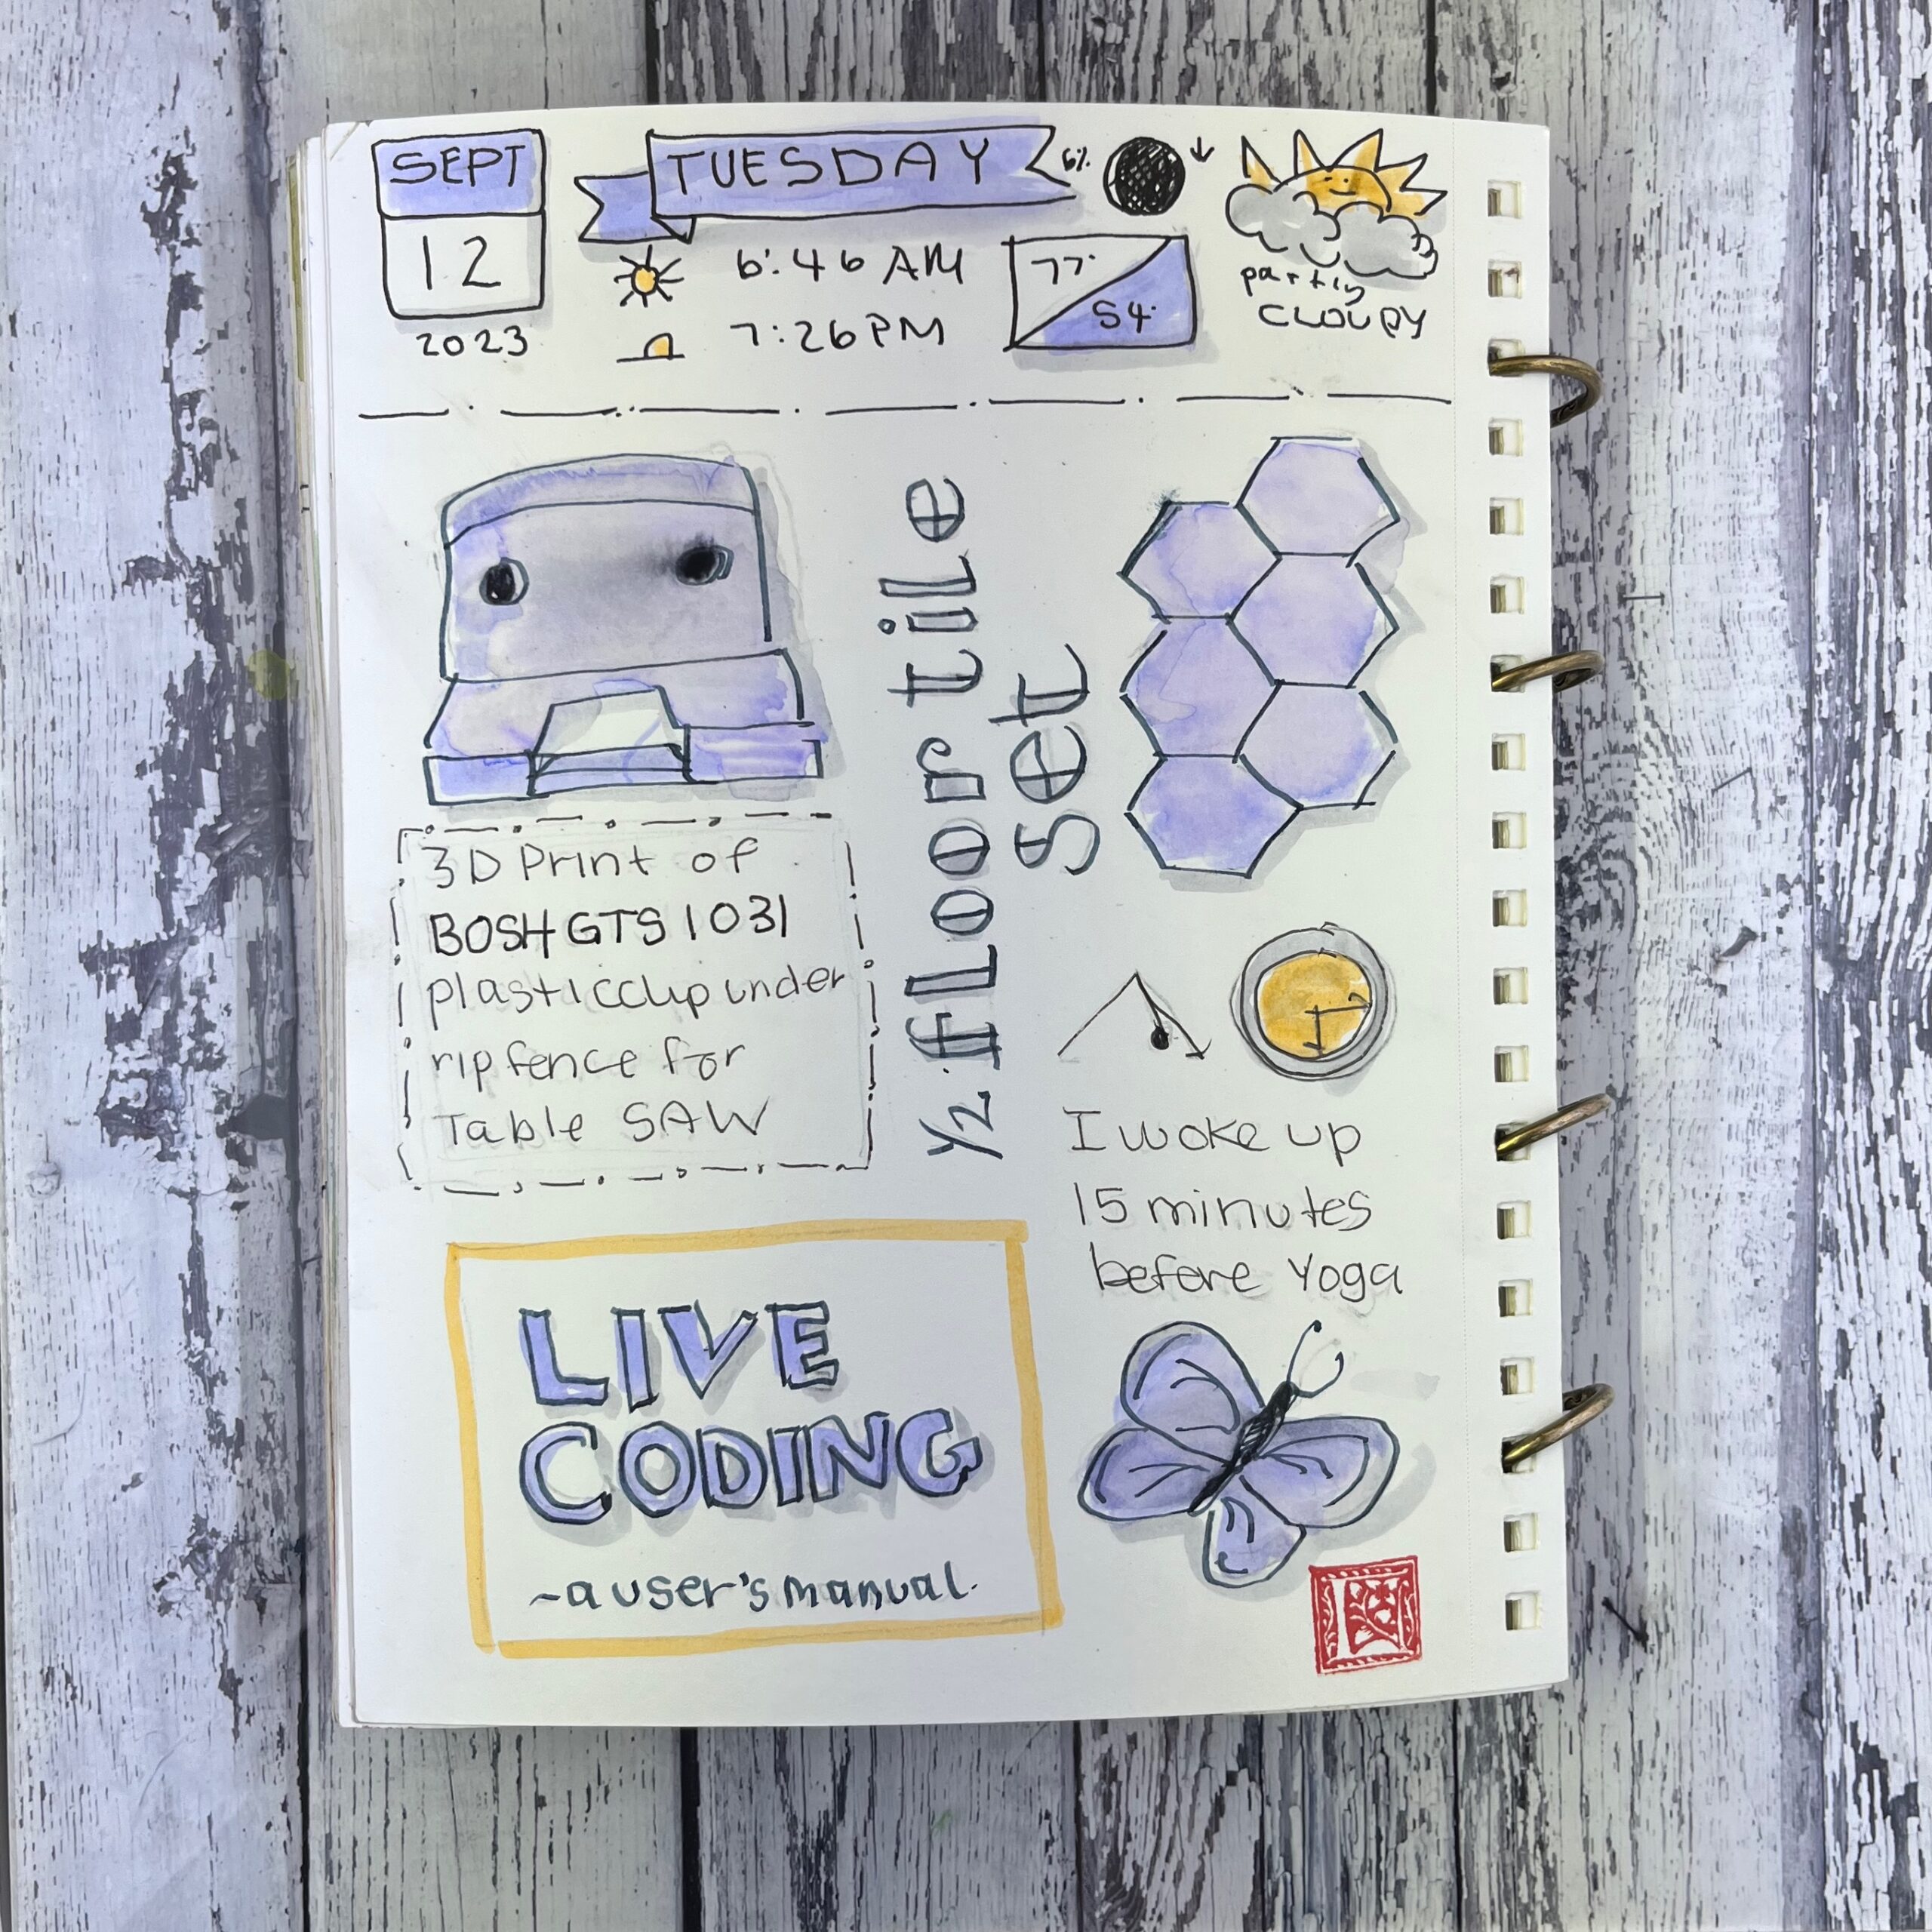 SEPT
12
2023
TUESDAY
6%
6:46 AM
7:26 PM
77°
54°
partly
CLOUDY
3D Print of
BOSH GTS 1031
plastic clip under
rip fence for
Table SAW
1/2 floor tile
Set
I woke up
15 minutes
before Yoga
LIVE
CODING
~a user's manual.